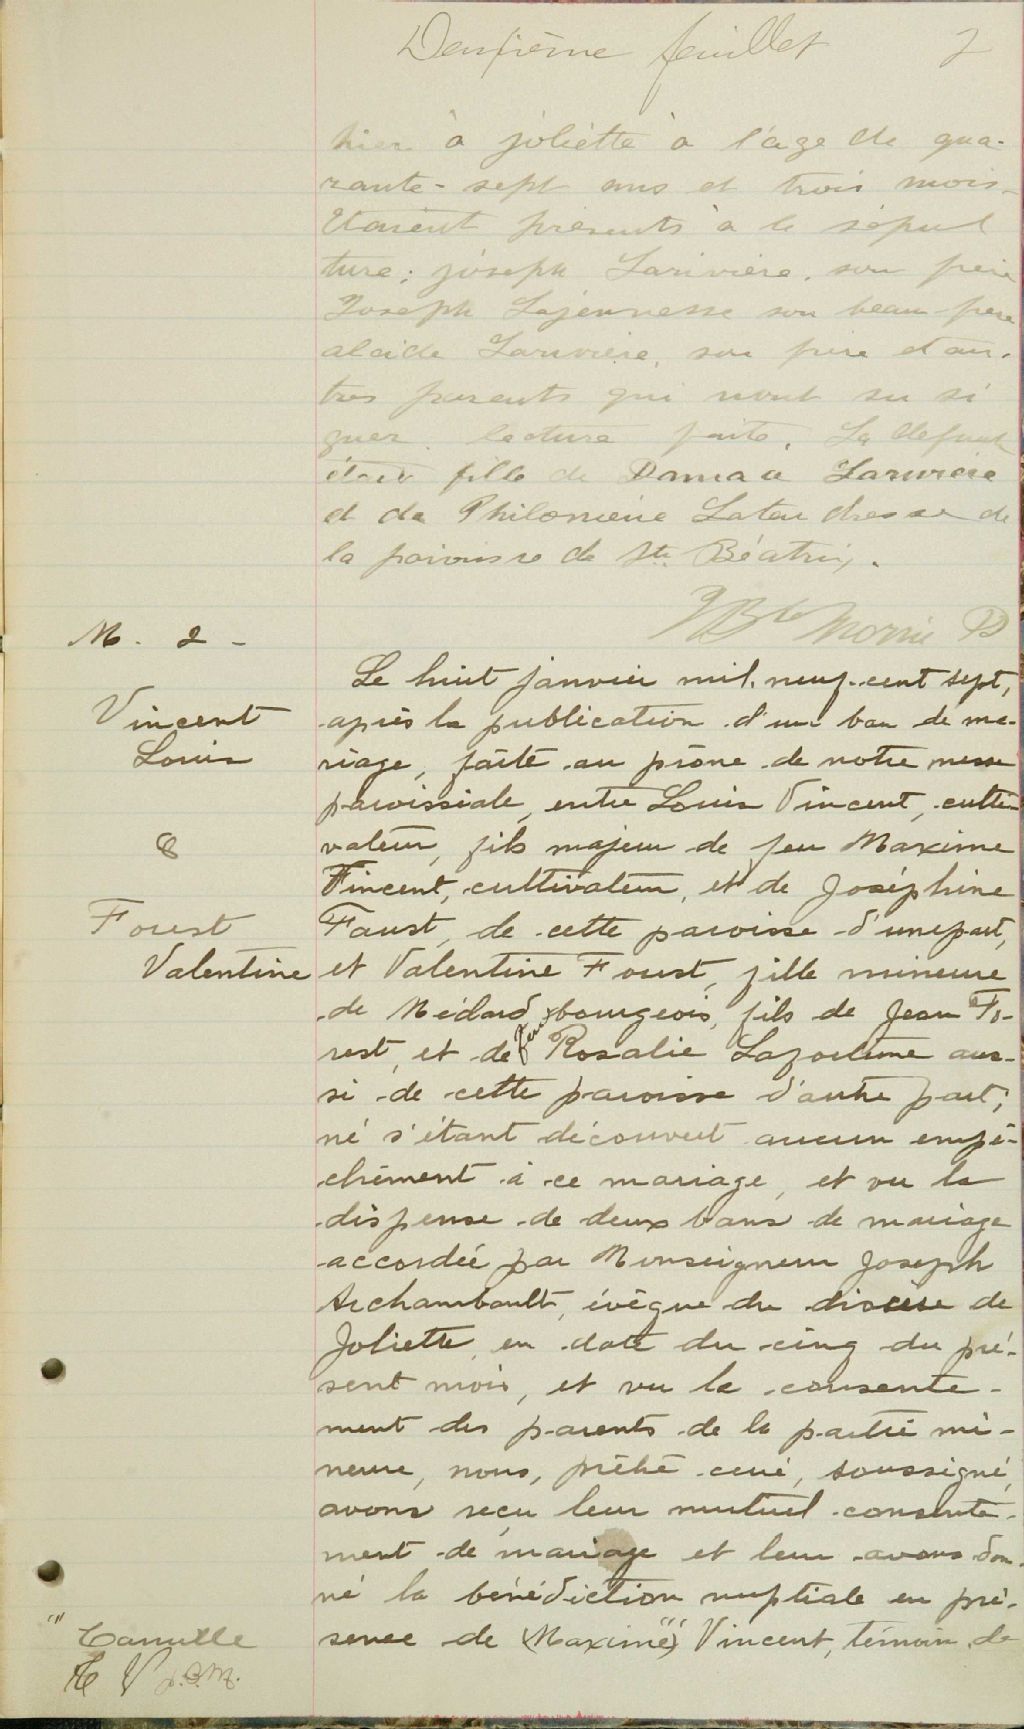 Deuxième feuillet 2
hier à joliette à l'age de qua-
rante-sept ans et trois mois-
Etaient présents à la sépul
ture; joseph Larivière, son père
Joseph Lajeunesse son beau-père
alcide Larivière, son frère et au-
tres parents qui n'ont su si
gner. lecture faite. La défunte
était fille de Damase Larivière
et de Philomène Latendresse de
la paroisse de Ste Béatrix.
M. 2 -
Vincent
Louis
&
Forest
Valentine
Le huit janvier mil neuf-cent sept,
après la publication d'un ban de ma-
riage, faite au prône de notre messe
paroissiale, entre Louis Vincent, culti-
vateur, fils majeur de feu Maxime
Vincent, cultivateur, et de Joséphine
Faust, de cette paroisse d'une part,
et Valentine Foust, fille mineure
de Médard bourgeois, fils de Jean Fo-
rest, et de feue Rosalie Lafortune aus-
si de cette paroisse d'autre part;
né s'étant découvert aucun empê-
chement à ce mariage, et vu la
dispense de deux bans de mariage
accordée par Monseigneur Joseph
Archambault, évêque du diocèse de
Joliette, en date du cinq du pré-
sent mois, et vu le consente-
ment des parents de la partie mi-
neure, nous, prêtre curé, soussigné,
avons reçu leur mutuel consente-
ment de mariage et leur avons don-
né la bénédiction nuptiale en pré-
sence de (Maxime)''' Vincent, témoin de
''' Camille